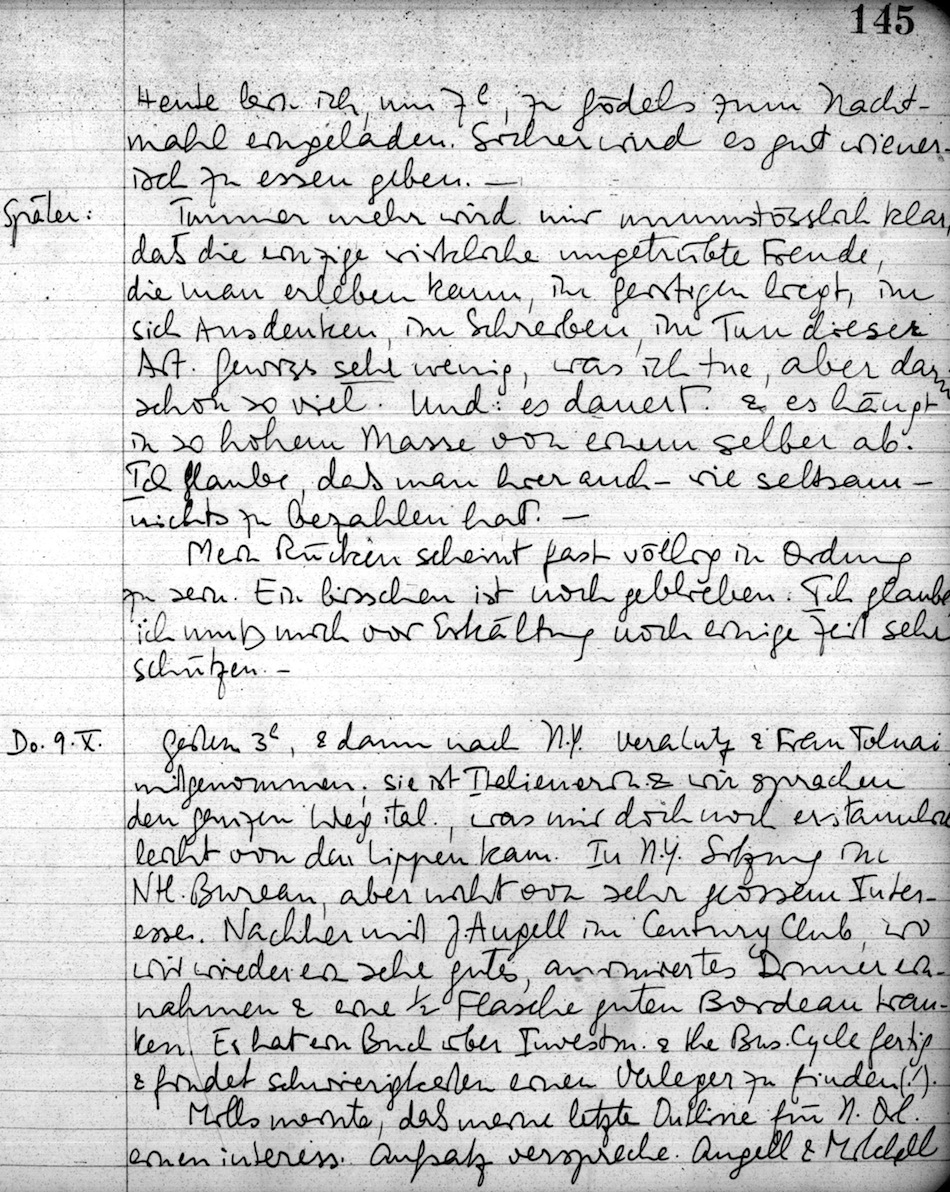 145
Heute bin ich, um 7h, zu Gödels zum Nacht-
mahl eingeladen. Sicher wird es gut wiener-
isch zu essen geben. —
Später: Immer mehr wird mir unumstösslich klar,
daß die einzige wirkliche ungetrübte Freude,
die man erleben kann, im geistigen liegt, im
sich Ausdenken, im Schreiben, im Tun dieser
Art. Gewiss sehr wenig, was ich tue, aber das
schon so viel. Und: es dauert. & es hängt
in so hohem Masse von einem selber ab.
Ich glaube, daß man hier auch – wie seltsam –
nichts zu bezahlen hat. —
Mein Rücken scheint fast völlig in Ordnung
zu sein. Ein bisschen ist noch geblieben. Ich glaube
ich muß mich vor Erkältung noch einige Zeit sehr
schützen. –
Do. 9. X. Gestern 3h, & dann nach N.Y. Vera Lutz & Frau Tolnai
mitgenommen. sie ist Italienerin & wir sprachen
den ganzen Weg ital., was mir doch noch erstaunlich
leicht von den Lippen kam. In N.Y. Sitzung im
Ntl. Bureau, aber nicht von sehr grossem Inter-
esse. Nachher mit J. Angell im Century Club, wo
wir wieder ein sehr gutes, Dinner ein-
nahmen & eine 1/2 Flasche guten Bordeau tran-
ken. Er hat ein Buch über Investm. & the Bus. Cycle fertig
& findet schwierigkeiten einen Verleger zu finden (!).
Mills meinte, daß meine letzte Outline für N. Orl.
einen interess. Aufsatz verspreche. Angell & Mitchell